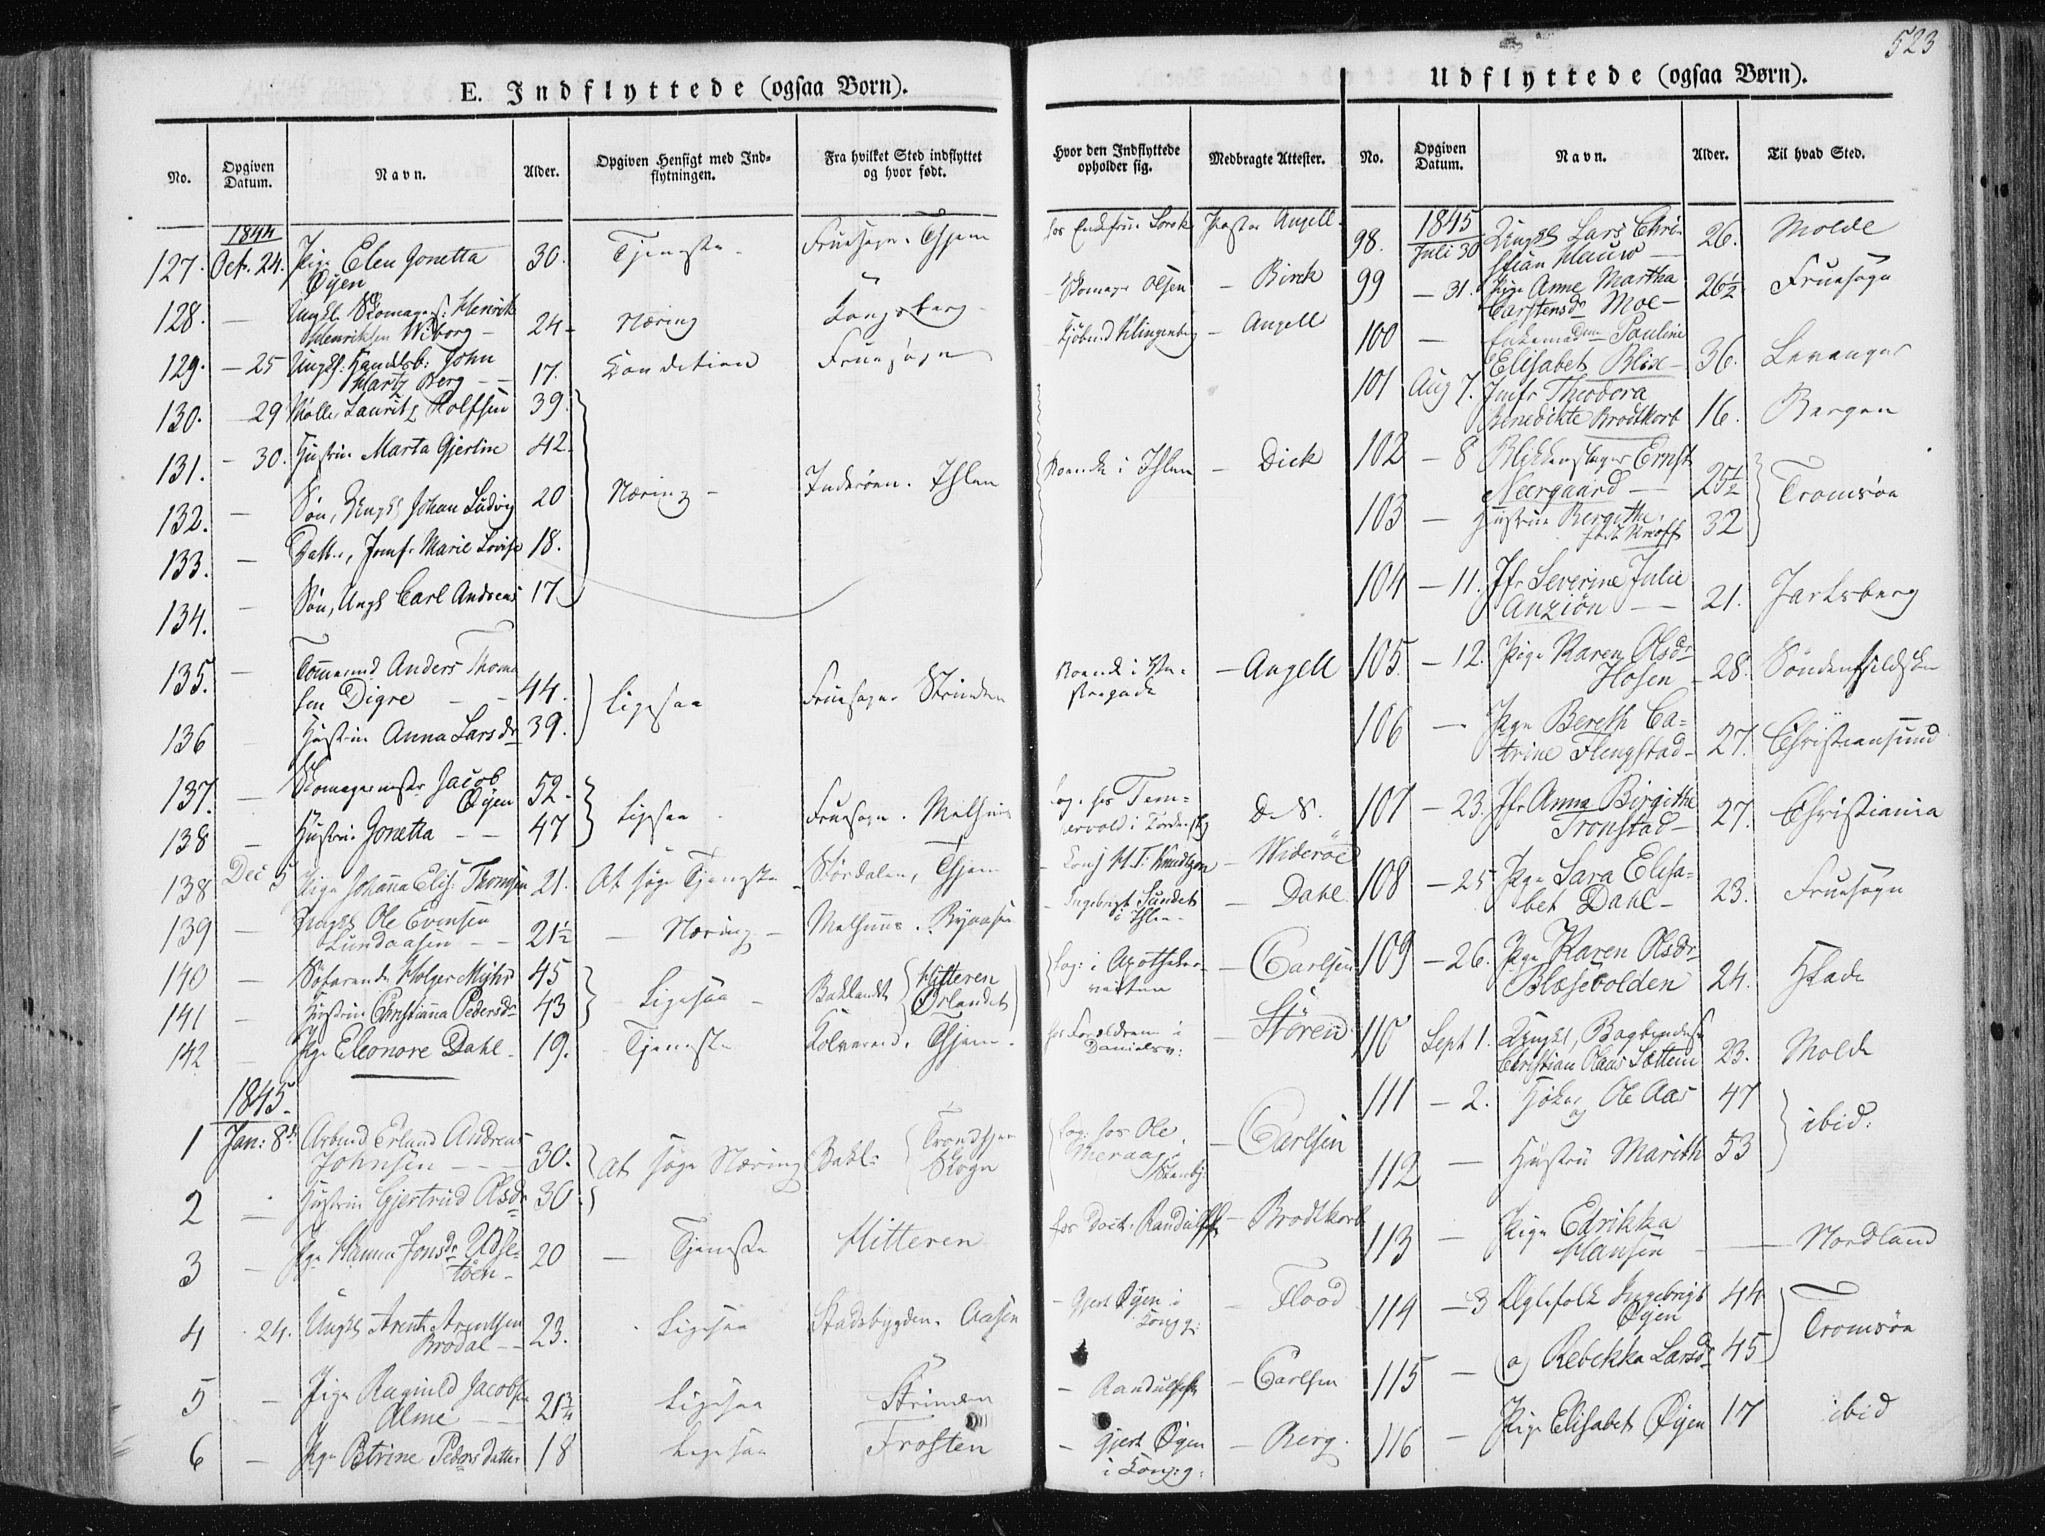 523
E. Indflyttede (ogsaa Børn).
No.
Opgiven Datum.
Navn.
Alder.
Opgiven Hensigt med Indflytningen.
Fra hvilket Sted indflyttet og hvor født.
Hvor den Indflyttede opholder sig.
Medbragte Attester.
1844
127. Oct. 24. Pige Elen Jonetta Øyen 30. Tjeneste Fruesogn. Thjem Angell
128. — Ungkl. Skomagers: Henrik Henriksen Wiborg 24 Næring Kongsberg Skomager Olsen — Birch
129. — 25 Ungkl. Handelsb: John Hartz Berg 17. Condition Fruesogn Kjøbmd Klingenberg — Angell
130. — 29 Møller Lauritz Rolfsen 39.
131. — 30. Hustru Marta Gjertine 42. Næring Inderøen. Ihlen Boende i Ihlen — Dick
132. — Søn, Ungkl Johan Ludvig 20
133. — Datter, Jomf. Marie Lovise 18.
134. — Søn, Ungk Carl Andreas 17
135. — Tømmermd Anders Thomasen Digre 44. Ligesaa Fruesogn Strinden Boende i — Angell
136 Hustru Anna Larsdr 39.
137. — Skomagermester Jacob Øyen 52. Ligesaa Fruesogn. Melhuus D. S.
138 — Hustru Jonetta 47
138 Dec 5 Pige Johanna Elis: Thomsen 21. At søge Tjeneste Størdalen, Thjem M. T. Knudtzon — Widerøe
139 — Ungkl Ole Evensen Lundaasen 21½ — Næring — Melhuus. Bynæsset Ingebrigt Sundet i Ihlen — Dahl
140 — Søfarende Holger Myhr 45 Ligesaa Baklandet Hitteren Log: i Apothekerveiten — Carlsen
141 — Hustru Christianna Pedersdr 43 Ørlandet
142 — Pige Eleonore Dahl 19. Tjeneste Kolvereid. Thjem. hos Forældrene i Danielsv: — Støren
1845.
1 Jan: 8de Arbmd Erlend Andreas Johnsen 30. at søge Næring Bakl: Trondhjem Skogn Log: hos Ole — Carlsen
2 — Hustru Gjertrud Olsdr 30.
3 — Pige Hanna Jonsdr 20 — Tjeneste Hitteren hos Doct. Randulff — Brodtkorb
4 24. Ungkl Arent Arentsen Brødal 23. Ligesaa Stadsbygden. Aasen — Gjert Øyen i Kongg: — Flood
5 — Pige Ragnild Jacobsen Alme 21¾ Ligesaa Strinden — Randulff — Carlsen
6 — Pige Petrine Pedersdatter 18 Ligesaa Frosten — Gjert Øyen i Kongg: — Berg.
Udflyttede (ogsaa Børn).
No.
Opgiven Datum.
Navn.
Alder.
Til hvad Sted.
1845
98. Juli 30 Ungkl Lars Christian Hauw 26. Molde
99 — 31. Pige Anne Martha Carstensdr Moe 26½ Fruesogn
100 — Enkemad Pauline Elisabet Blix 36. Levanger
101 Aug 7. Jmfr Theodora Benedikte Brodtkorb 16. Bergen
102 — 8 Blikkenslager Ernst Neergaard 25½ Tromsøe
103 — Hustru Bergithe født Knoff 32
104 — 11. Jfr Severine Julie Anziøn 21. Jarlsberg
105. — 12. Pige Karen Olsdr Hosen 28. Søndenfjeldske
106 — Pige Bereth Catrine Flengstad 27. Christiansund
107 — 23. Jfr Anna Birgithe Tronstad 27. Christiania
108 — 25 Pige Sara Elisabet Dahl 23. Fruesogn
109 — 26. Pige Karen Olsdr Blæsebolden 24.
110 Sept 1. Ungkl, Bogbinders Christian Olaus Sættem 23. Molde
111 — 2. Høker Ole Aas 47 ibid:
112 — og Hustru Marith 53
113 — Pige Edrikka Hansen Nordland
114 — 3 Ægtefolk Ingebrigt Øyen 44 Tromsøe
115 — Rebekka Larsdr 45
116 — Pige Elisabet Øyen 17 ibid